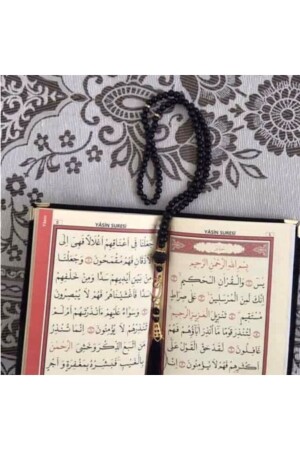 YÂSİN SURESİ
بِسْمِ اللّٰهِ الرَّحْمٰنِ الرَّحِيمِ
يٰسٓ وَالْقُرْاٰنِ الْحَكِيمِ
اِنَّكَ لَمِنَ الْمُرْسَلِينَ عَلٰى صِرَاطٍ
مُسْتَقِيمٍ تَنْزِيلَ الْعَزِيزِ الرَّحِيمِ
لِتُنْذِرَ قَوْمًا مَا اُنْذِرَ اٰبَاؤُهُمْ فَهُمْ
غَافِلُونَ لَقَدْ حَقَّ الْقَوْلُ عَلٰى
اَكْثَرِهِمْ فَهُمْ لَا يُؤْمِنُونَ اِنَّا
YÂSİN SURESİ
جَعَلْنَا فِي اَعْنَاقِهِمْ اَغْلَالًا فَهِيَ اِلَى
الْاَذْقَانِ فَهُمْ مُقْمَحُونَ وَجَعَلْنَا
مِنْ بَيْنِ اَيْدِيهِمْ سَدًّا وَمِنْ خَلْفِهِمْ
سَدًّا فَاَغْشَيْنَاهُمْ فَهُمْ لَا يُبْصِرُونَ
وَسَوَاءٌ عَلَيْهِمْ ءَاَنْذَرْتَهُمْ اَمْ لَمْ
تُنْذِرْهُمْ لَا يُؤْمِنُونَ اِنَّمَا تُنْذِرُ
مَنِ اتَّبَعَ الذِّكْرَ وَخَشِيَ الرَّحْمٰنَ
بِالْغَيْبِ فَبَشِّرْهُ بِمَغْفِرَةٍ وَاَجْرٍ